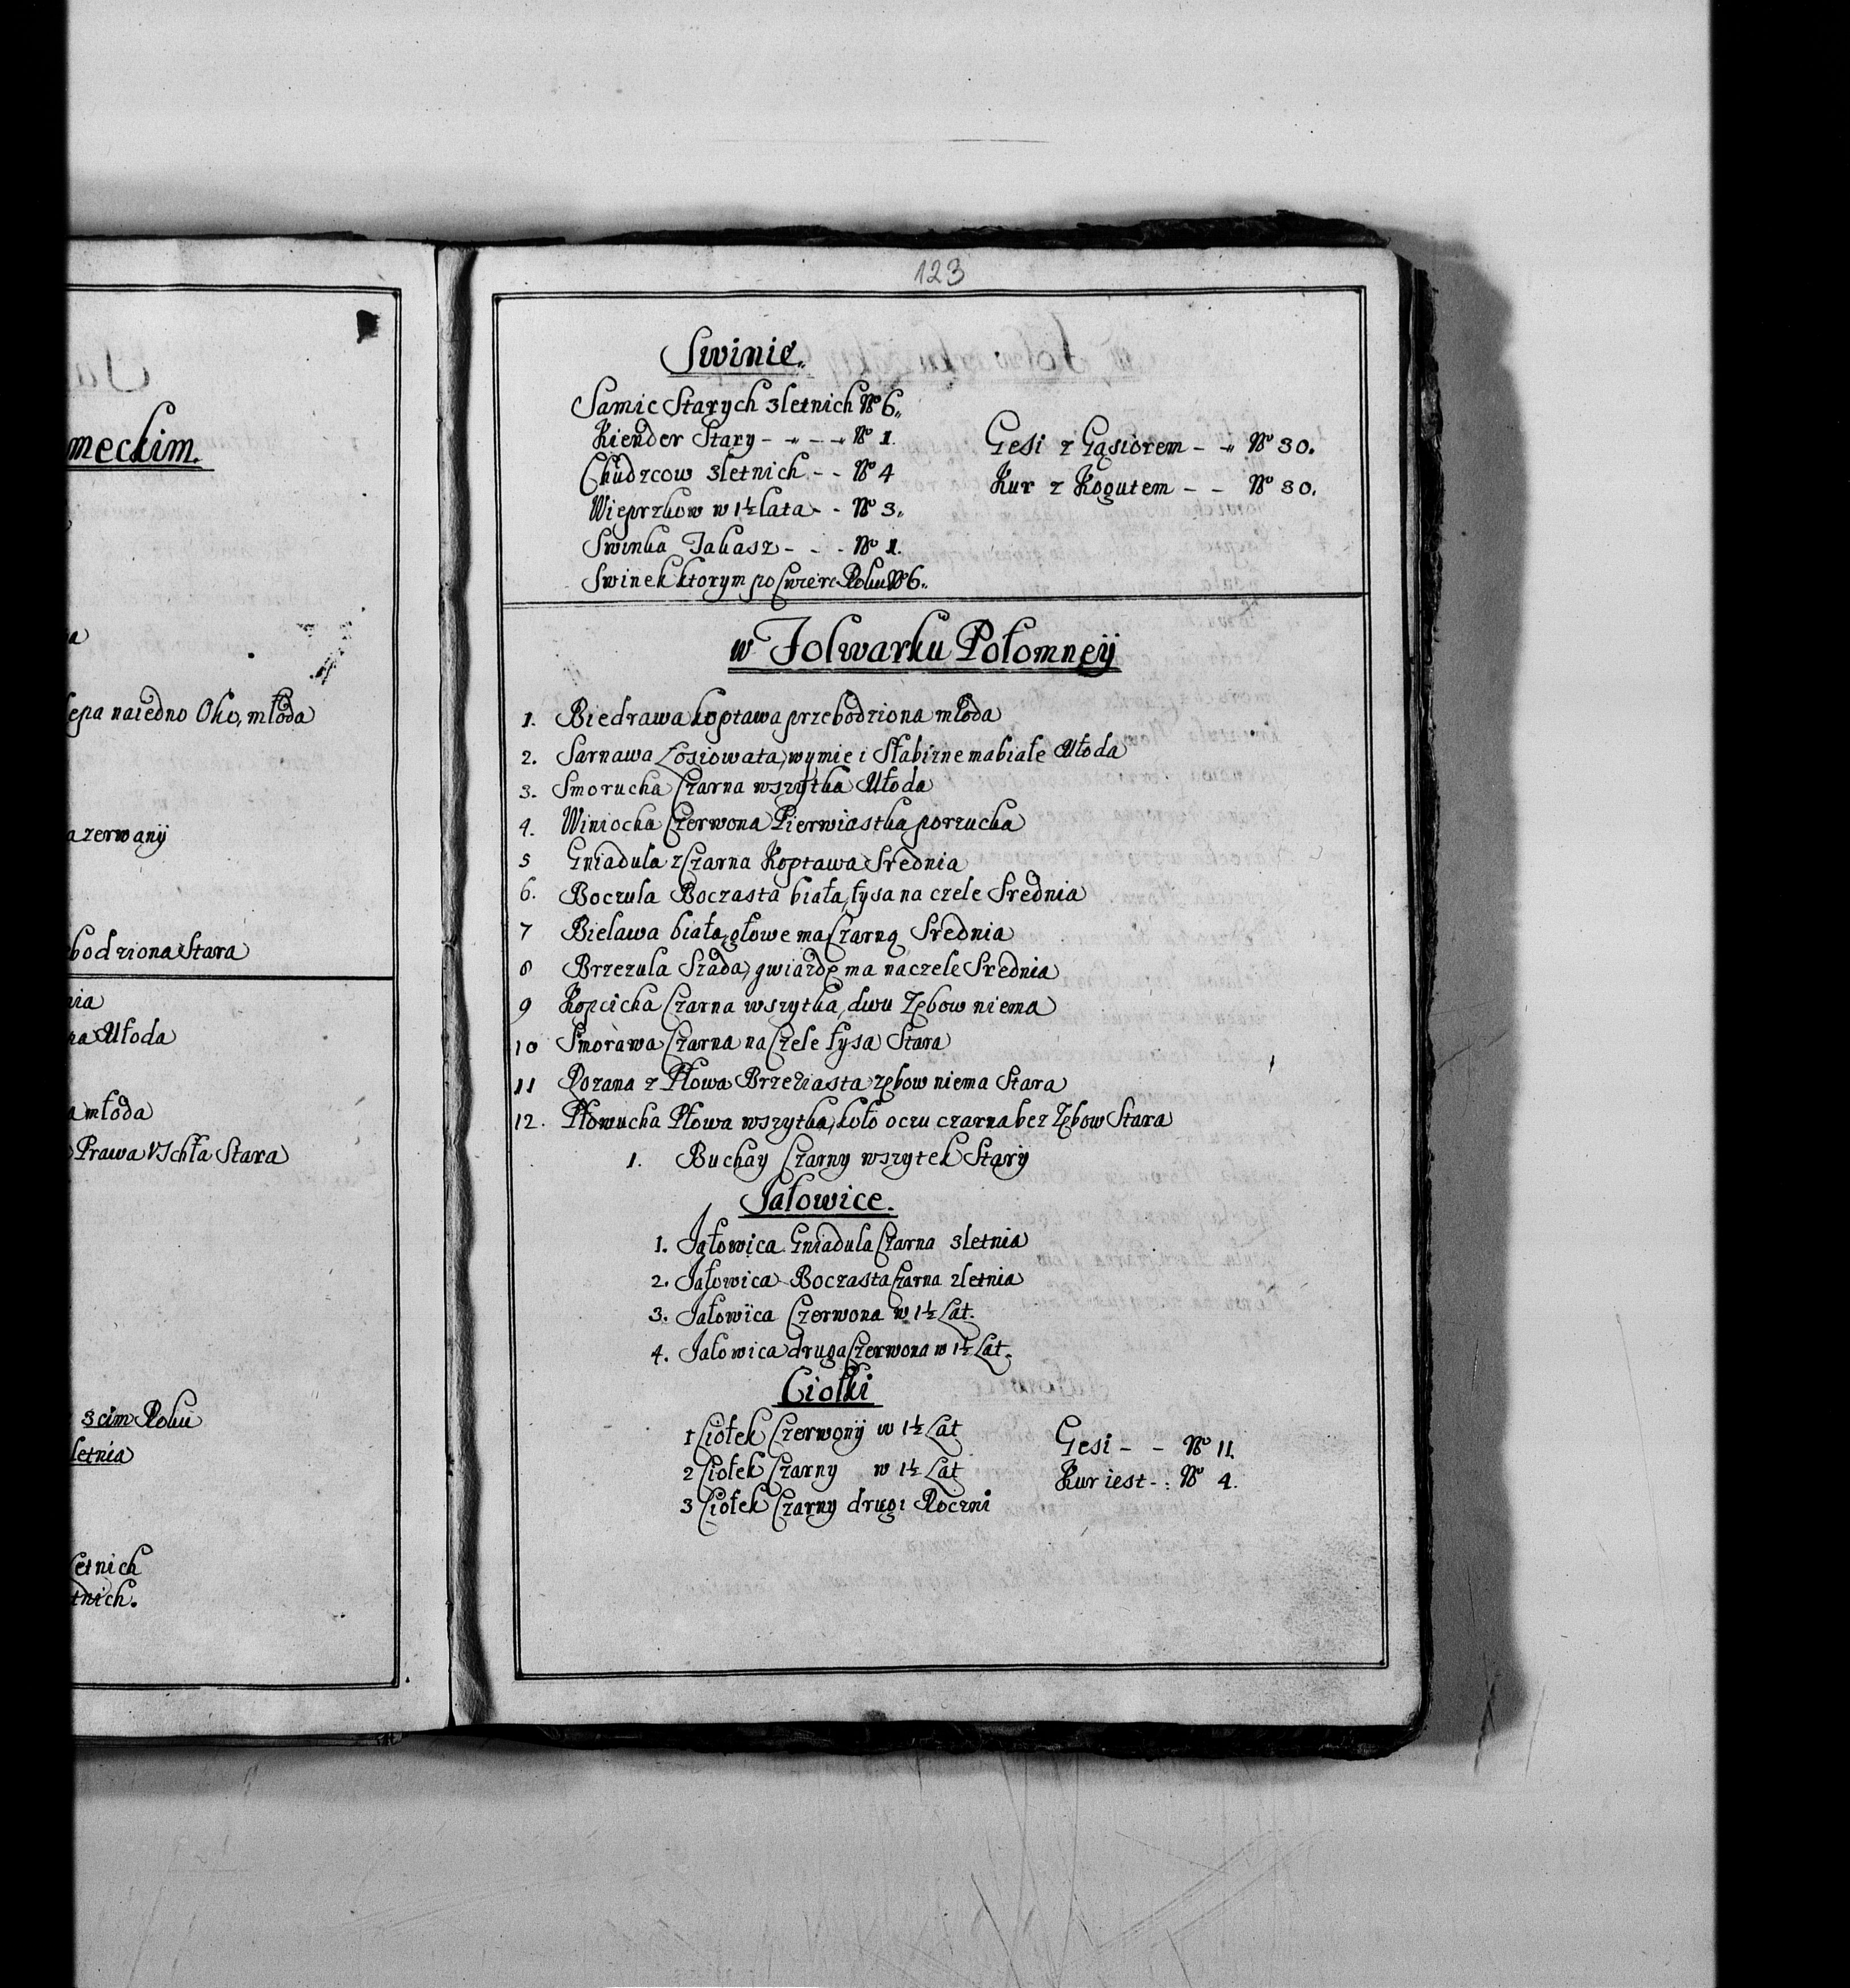 meckim.
a
lepa naiedno Oko, młoda
a zerwanÿ
bodziona Stara
nia
na Młoda
a młoda
Prawa Uschła Stara
3cim Roku
letnia
letnich
tnich.
123
Swinie.
Samic Starych 3letnich No 6.
Kiender Stary - - - - No 1.
Chudzcow 3letnich - - No 4
Wieprzkow w 1½ lata - - No 3.
Swinka Jakasz - - - No 1.
Swinek ktorym po Cwierc Roku No 6.
Gesi z Gąsiorem - - No 30.
Kur z Kogutem - - No 30.
w Folwarku Połomneÿ
1. Biedrawa koptawa przebodziona młoda
2. Sarnawa Łosiowata, wymie i Słabizne ma białe Młoda
3. Smorucha Czarna wszytka Młoda
4. Winiocha Czerwona Pierwiastka porzucka
5 Gniadula z Czarna Koptawa Srednia
6. Boczula Boczasta biała, łysa na czele Srednia
7 Bielawa biała, głowe ma Czarną Srednia
8 Brzezula Szada, gwiazdę ma na czele Srednia
9 Kopcicha Czarna wszytka, dwu Zębow niema
10 Smorawa Czarna na Czele łysa Stara
11 Rozana z Płowa Brzeziasta zębow niema Stara
12. Płowucha Płowa wszytka, koło oczu czarna bez Zębow Stara
1. Buchay Czarny wszytek Starÿ
Jałowice.
1. Jałowica Gniadula Czarna 3letnia
2. Jałowica Boczasta Czarna 2letnia
3. Jałowica Czerwona w 1½ Lat.
4. Jałowica druga Czerwona w 1½ Lat.
Ciołki
1 Ciołek Czerwonÿ w 1½ Lat
2 Ciołek Czarny w 1½ Lat
3 Ciołek Czarny drugi Roczni
Gesi - - No 11.
Kur iest - : No 4.